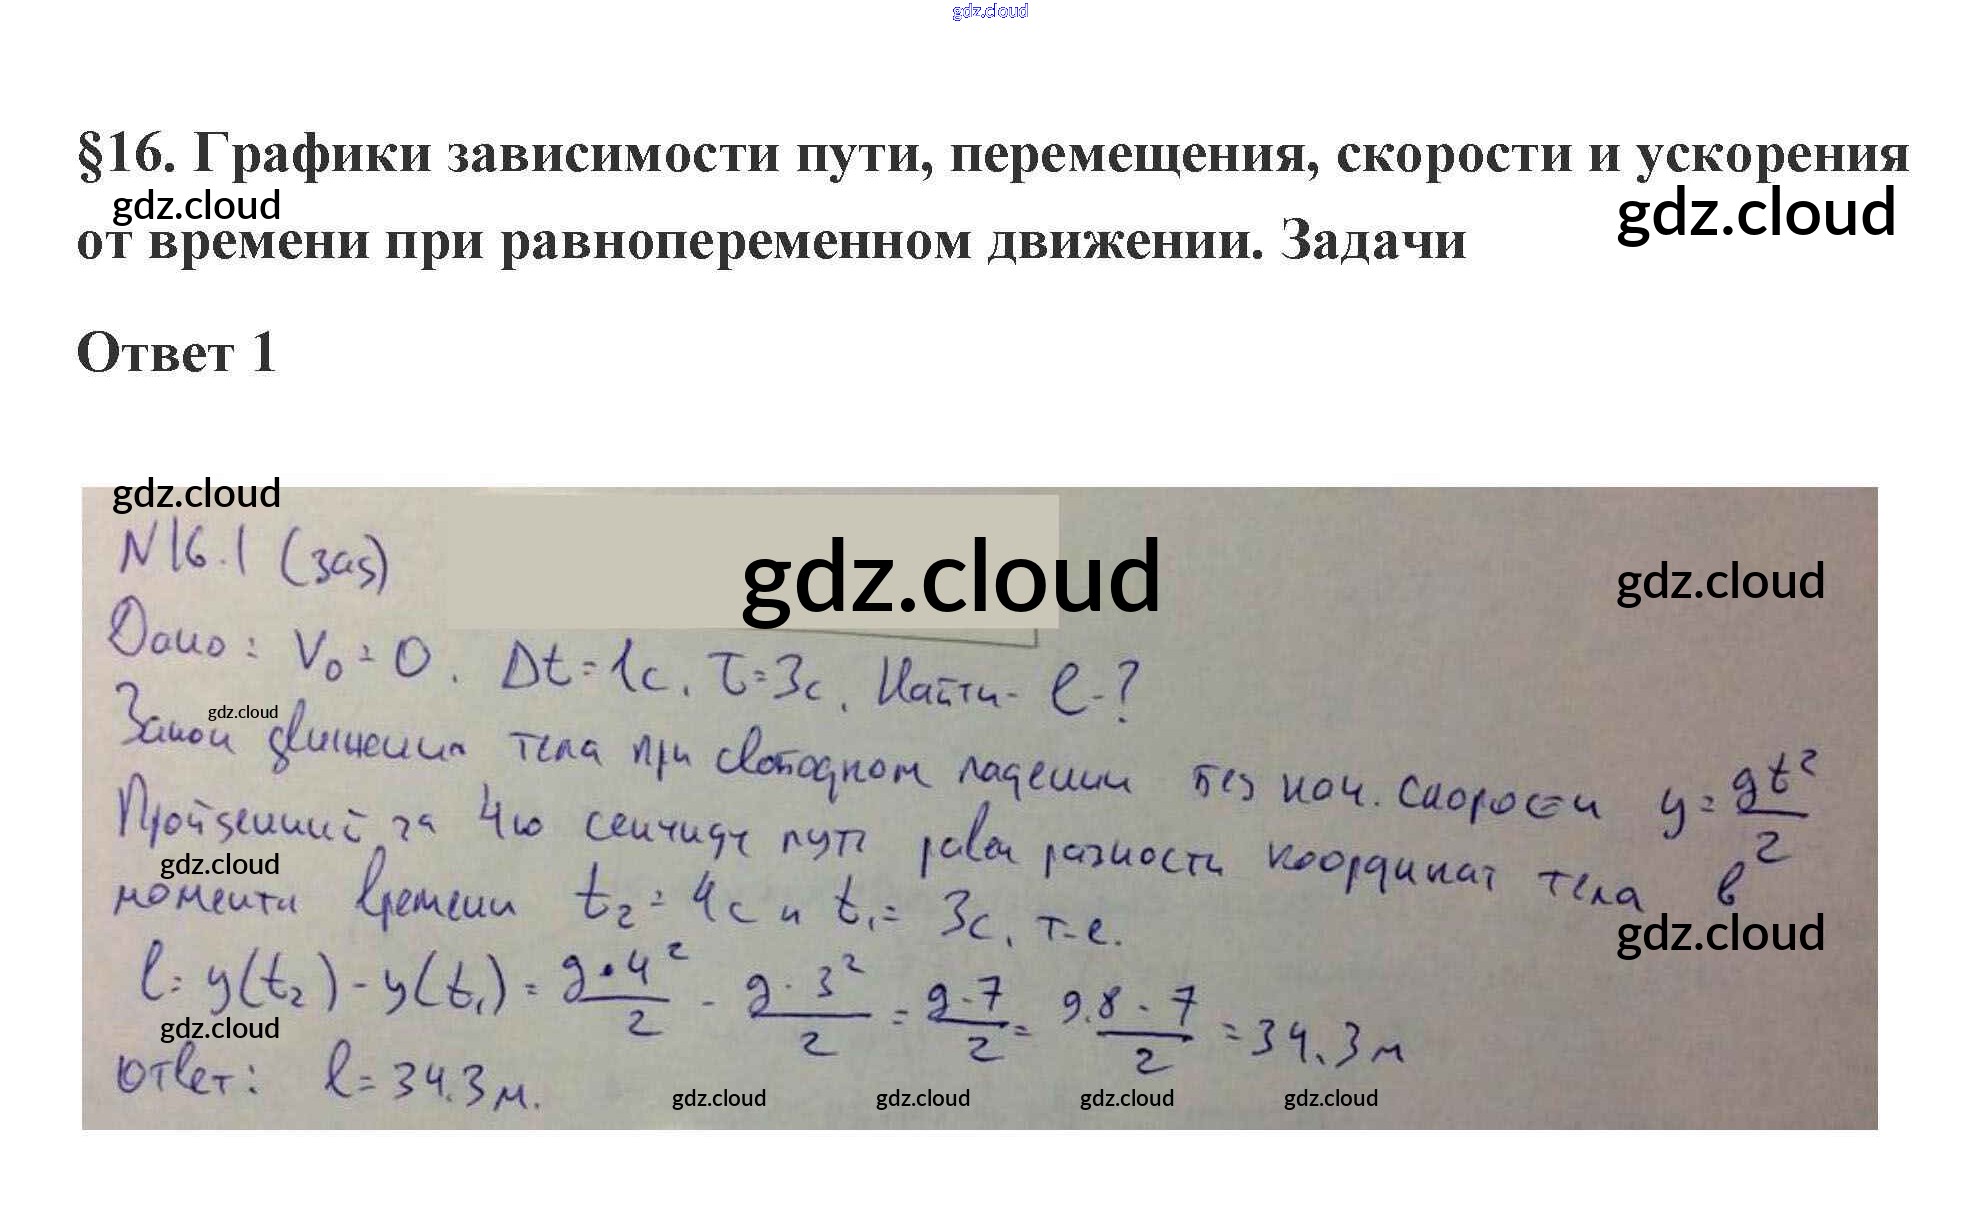 gdz.cloud
§16. Графики зависимости пути, перемещения, скорости и ускорения
gdz.cloud
gdz.cloud
от времени при равнопеременном движении. Задачи
Ответ 1
gdz.cloud
N16.1 (заg)
gdz.cloud
gdz.cloud
Дано: V₀=0. Δt=1с. τ=3с. Найти- l-?
gdz.cloud
Закон движения тела при свободном падении без нач. скорости y=gt²/2
Пройденный за 4ю секунду путь равен разности координат тела в
gdz.cloud
моменты времени t₂=4с и t₁=3с, т.е.
gdz.cloud
l=y(t₂)-y(t₁)=g·4²/2-g·3²/2=g·7/2=9.8·7/2=34.3м
gdz.cloud
Ответ: l=34.3м.
gdz.cloud gdz.cloud gdz.cloud gdz.cloud